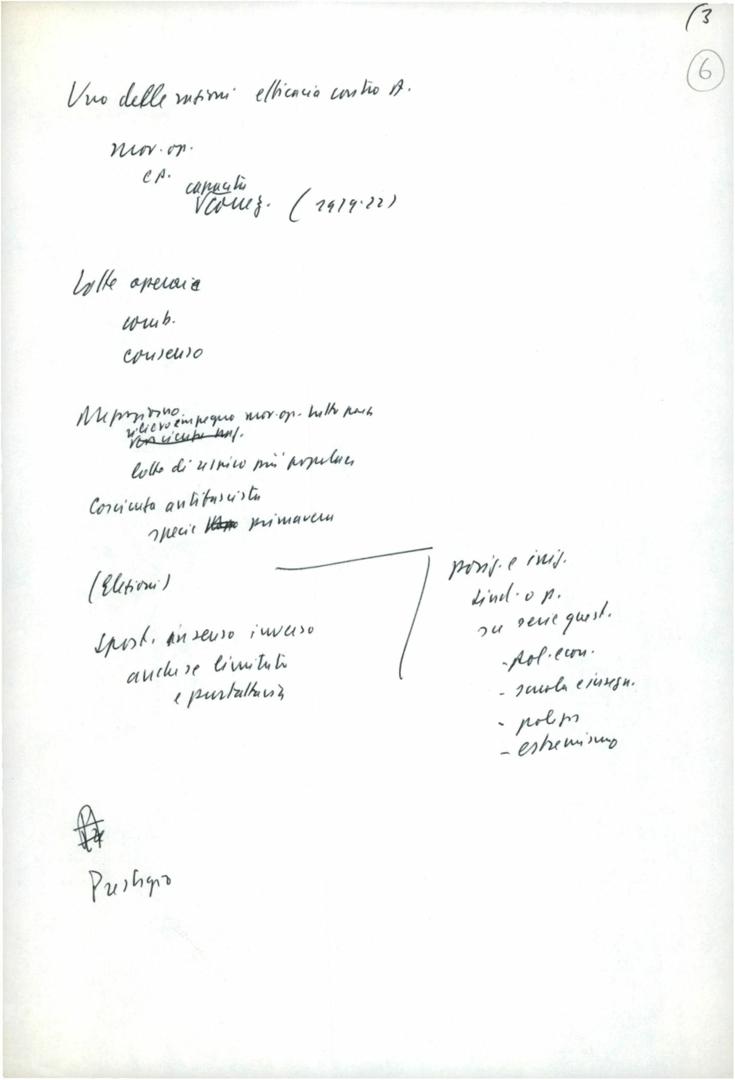 (3
6
Uno delle ragioni efficacia contro A.
mov. op.
e A.
capacità
V coneg. (1919-22)
Lotte operaie
comb.
consenso
Mezzogiorno
rilievo impegno mov. op. tutto paese
lotte di segnico più popolari
Cosciente antifascista
specie primavera
(Elezioni)
Spost. in senso inverso
anche se limitato
e puntattavia
posiz. e iniz.
sind. o p.
su serie quest.
- pol. econ.
- scuola e insegn.
- polizia
- estremismo
Prestigio